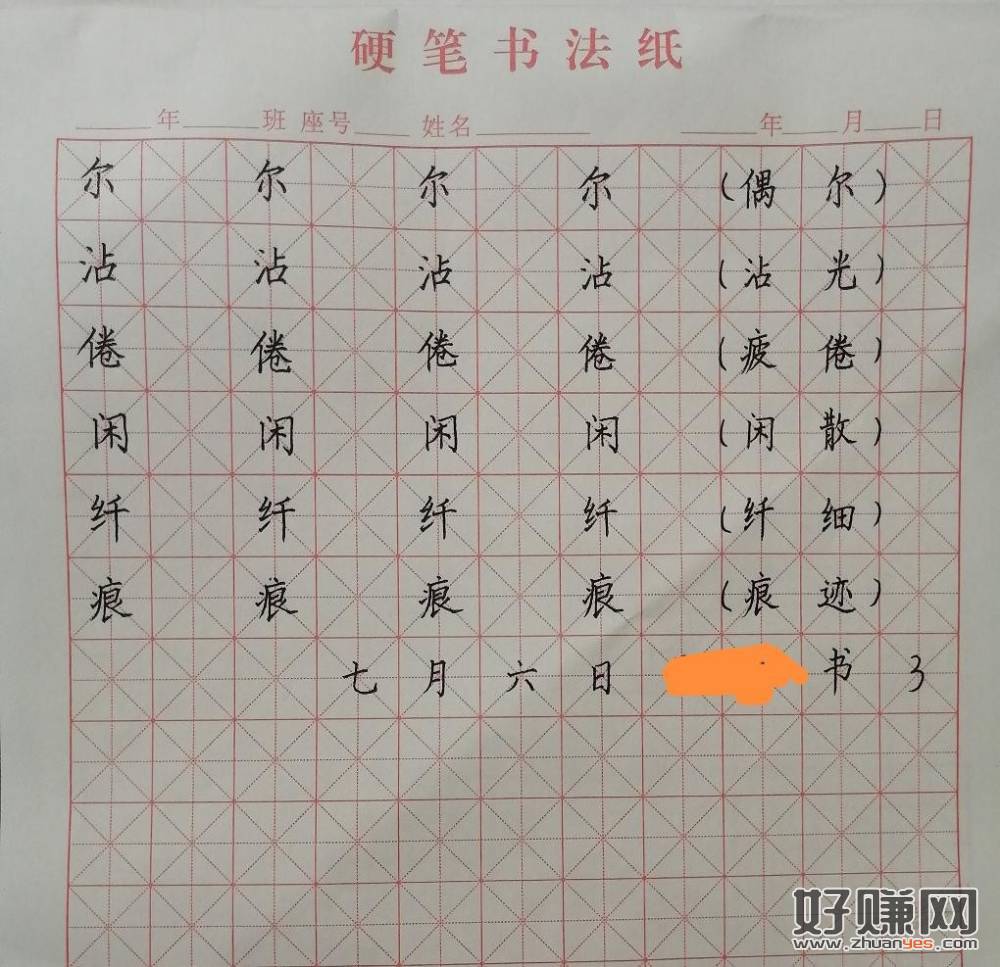 硬笔书法纸
年 班 座号 姓名 年 月 日
尔 尔 尔 尔 (偶尔)
沾 沾 沾 沾 (沾光)
倦 倦 倦 倦 (疲倦)
闲 闲 闲 闲 (闲散)
纤 纤 纤 纤 (纤细)
痕 痕 痕 痕 (痕迹)
七月六日 书 3
好赚网
www.zhuanyes.com